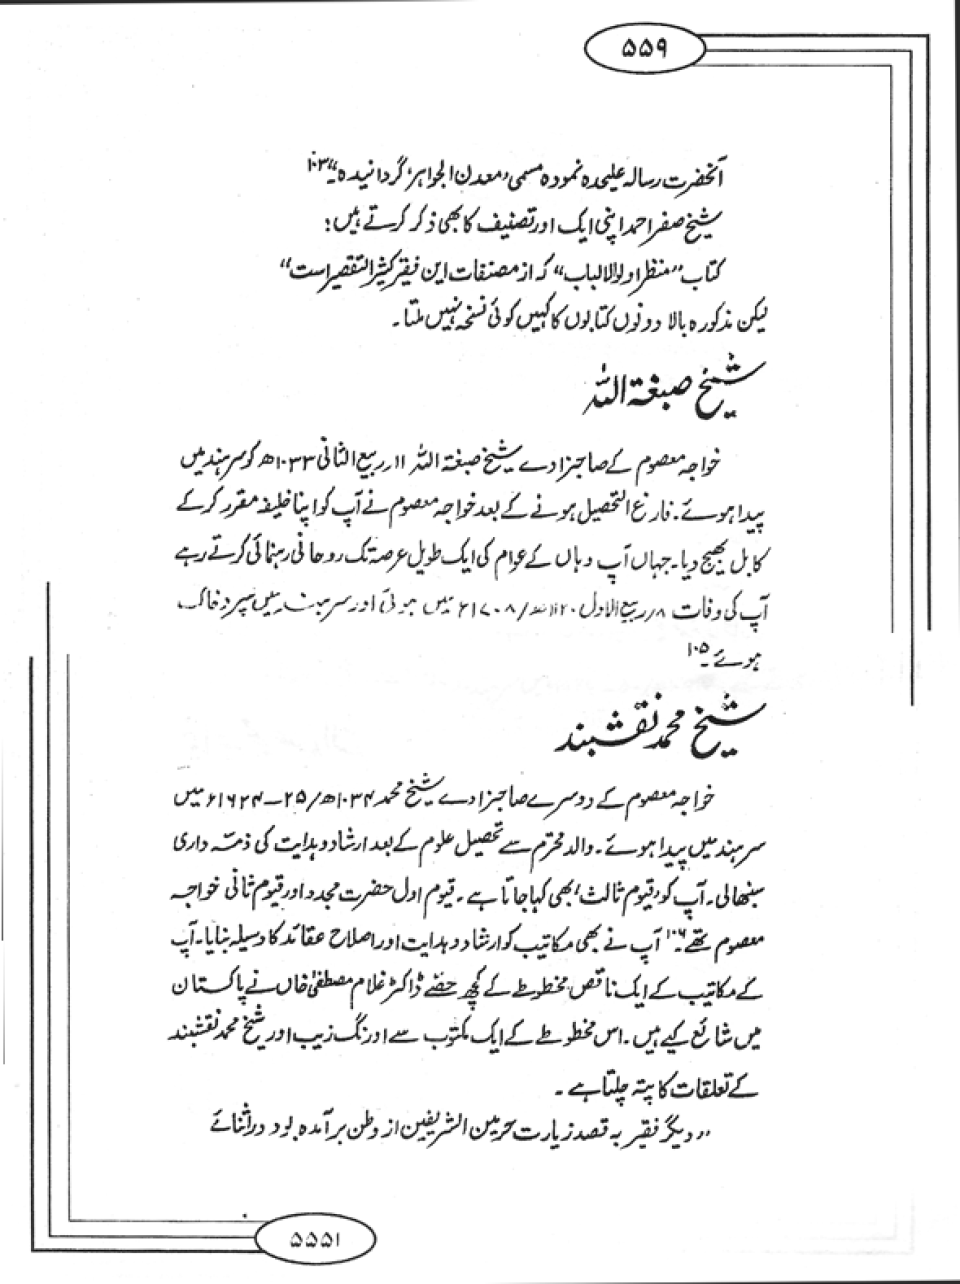 ۵۵۹
آنحضرت رسالہ علیحدہ نمودہ مسمی ’معدن الجواہر‘ گردانیدہ“۔۱۰۳
شیخ صفر احمد اپنی ایک اور تصنیف کا بھی ذکر کرتے ہیں:
کتاب ”منظر اولوالالباب“ کہ از مصنفات این فقیر کثیر التقصیر است“
لیکن مذکورہ بالا دونوں کتابوں کا کہیں کوئی نسخہ نہیں ملتا۔
شیخ صبغۃ اللہ
خواجہ معصوم کے صاحبزادے شیخ صبغۃ اللہ ۱۱ ربیع الثانی ۱۰۳۳ھ کو سرہند میں
پیدا ہوئے۔ فارغ التحصیل ہونے کے بعد خواجہ معصوم نے آپ کو اپنا خلیفہ مقرر کرکے
کابل بھیج دیا۔ جہاں آپ وہاں کے عوام کی ایک طویل عرصہ تک روحانی رہنمائی کرتے رہے
آپ کی وفات ۸ ربیع الاول ۱۱۲۰ھ/۱۷۰۸ء میں ہوئی اور سرہند میں سپرد خاک
ہوئے۔۱۰۵
شیخ محمد نقشبند
خواجہ معصوم کے دوسرے صاحبزادے شیخ محمد ۱۰۳۴ھ/۲۵-۱۶۲۴ء میں
سرہند میں پیدا ہوئے۔ والد محترم سے تحصیل علوم کے بعد ارشاد و ہدایت کی ذمہ داری
سنبھالی۔ آپ کو ’قیوم ثالث‘ بھی کہا جاتا ہے۔ قیوم اول حضرت مجدد اور قیوم ثانی خواجہ
معصوم تھے۔۱۰۶ آپ نے بھی مکاتیب کو ارشاد و ہدایت اور اصلاح عقائد کا وسیلہ بنایا۔ آپ
کے مکاتیب کے ایک ناقص مخطوطے کے کچھ حصے ڈاکٹر غلام مصطفیٰ خاں نے پاکستان
میں شائع کیے ہیں۔ اس مخطوطے کے ایک مکتوب سے اورنگ زیب اور شیخ محمد نقشبند
کے تعلقات کا پتہ چلتا ہے۔
”دیگر فقیر بہ قصد زیارت حرمین الشریفین از وطن برآمدہ بود در اثنائے
۵۵۵۱